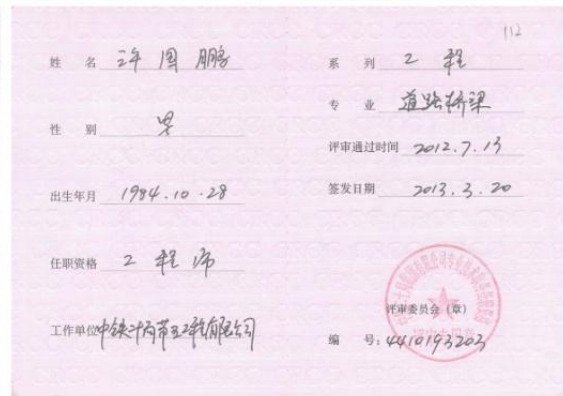 112
姓 名 许国鹏
性 别 男
出生年月 1984.10.28
任职资格 工程师
工作单位 中铁十六局第五工程有限公司
系 列 工程
专 业 道路桥梁
评审通过时间 2012.7.13
签发日期 2013.3.20
评审委员会（章）
编 号：4410193203